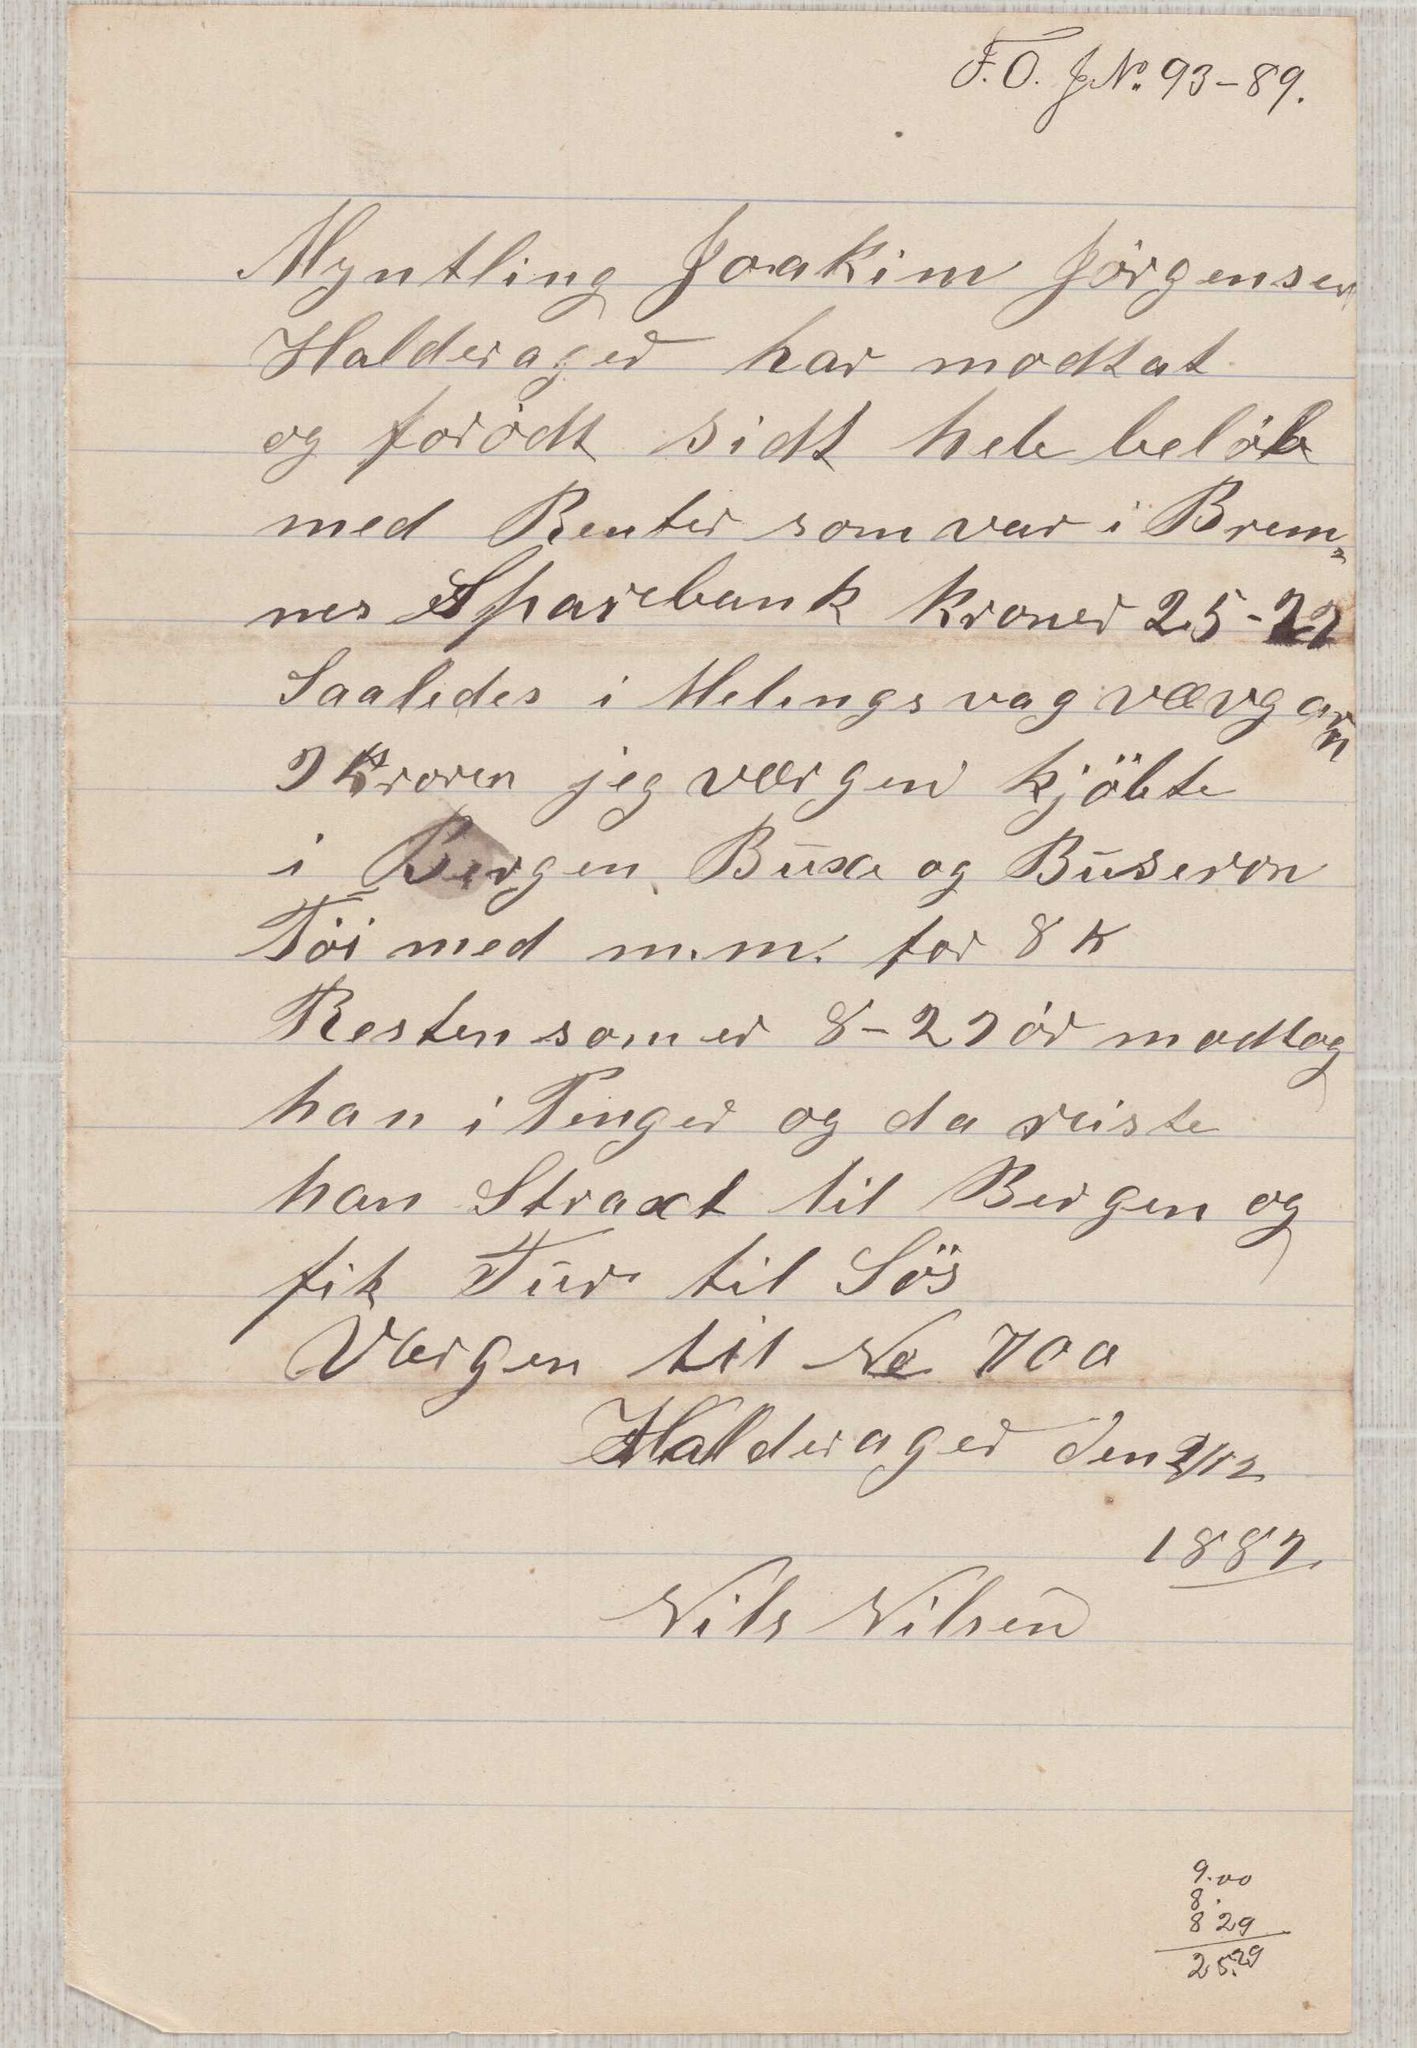 F. O. J N.º 93-89.
Myntling Joakim Jörgensen
Halderager har modtat
og forödt sidt hele belöb
med Renter som var i Brem=
nes Sparebank Kroner 25-29
Saaledes i Melingsvag
9 Kroner jeg værgen kjöbte
i Bergen Buxe og Buseron
Töi med m.m. for 8 K
Resten som er 8-29 ör modtog
han i Penger og da reiste
han Straxt til Bergen og
fik Tur til Sös
Værgen til No
Halderager den 9/12
1889
Nils Nilsen
9.00
8.
8 29
25.29